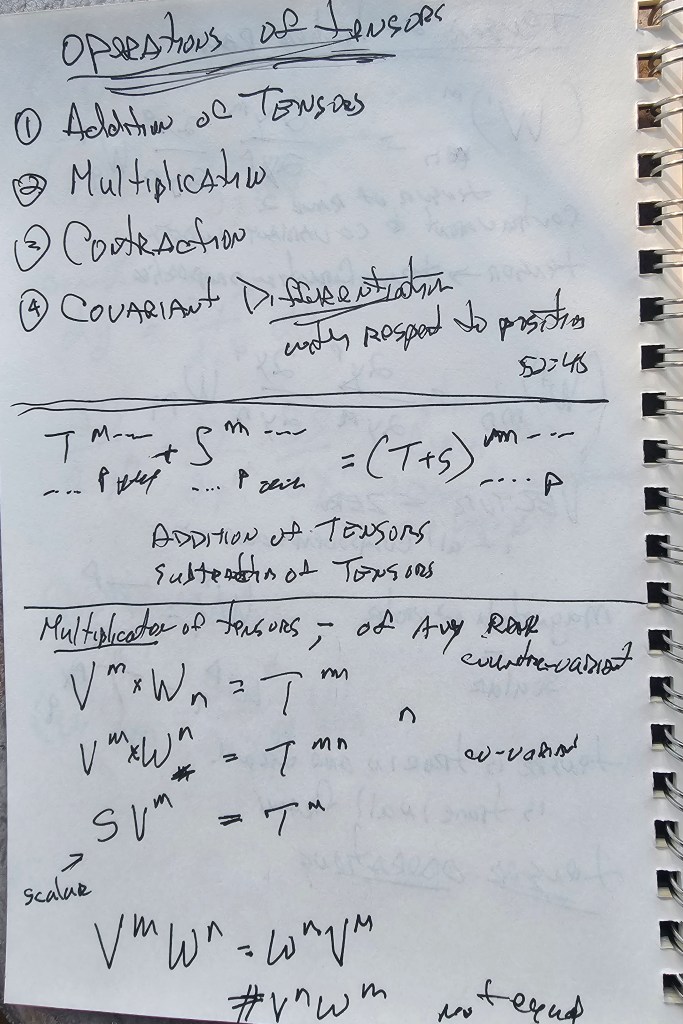 OPERATIONS of TENSORS
① Addition of TENSORS
② Multiplication
③ Contraction
④ COVARIANT Differentiation
with respect to position
52:46
T^{m---}_{....P} + S^{m ---}_{....P} = (T+S)^{m ---}_{....P}
ADDITION of TENSORS
Subtraction of TENSORS
Multiplication of tensors, - of Any RANK
V^m x W_n = T^m_n contra-variant
V^m x W^n = T^{mn} co-variant
S V^m = T^m
scalar
V^m W^n = W^n V^m
≠ V^n W^m not equal